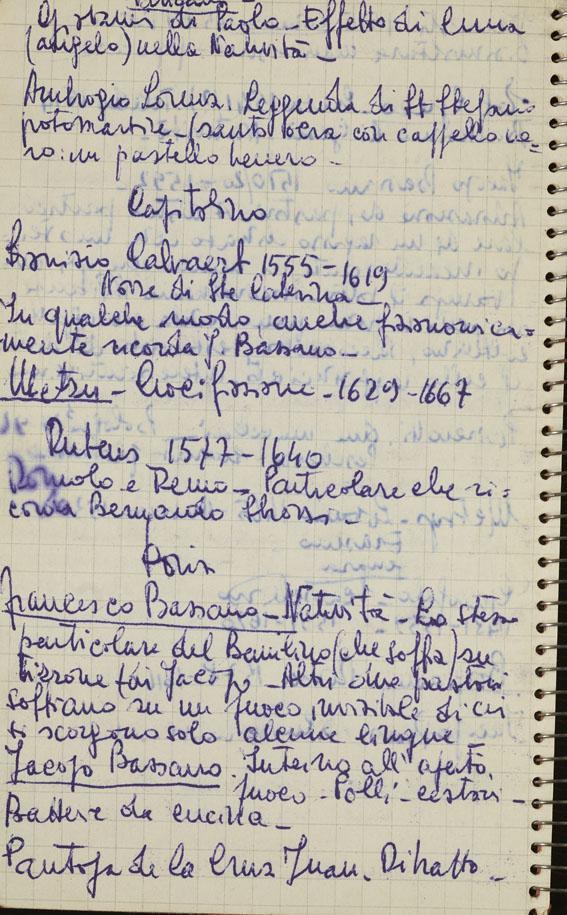 Giovanni di Paolo - Effetto di luna
(angelo) nella Natività -
Ambrogio Lorenz. Leggenda di St Stefano
protomartire - (santo
ro: un pastello
Capitolino
Dionisio Calvaert 1555-1619
Nozze di Ste Caterina
In qualche modo anche fisionomica=
mente ricorda J. Bassano -
Metsu - Crocifissione - 1629-1667
Rubens 1577-1640
Romolo e Remo - Particolare che ri=
corda Bernardo Strozzi -
Doria
Francesco Bassano - Natività - Lo stesso
particolare del Bambino (che soffia) su
tizzone (di Jacopo - Altri due pastori
soffiano su un fuoco invisibile di cui
si scorgono solo alcune lingue -
Jacopo Bassano. Interno all'aperto.
fuoco - Polli - cestari -
Batterie da cucina -
Pantoja de la Cruz Juan. Ritratto -